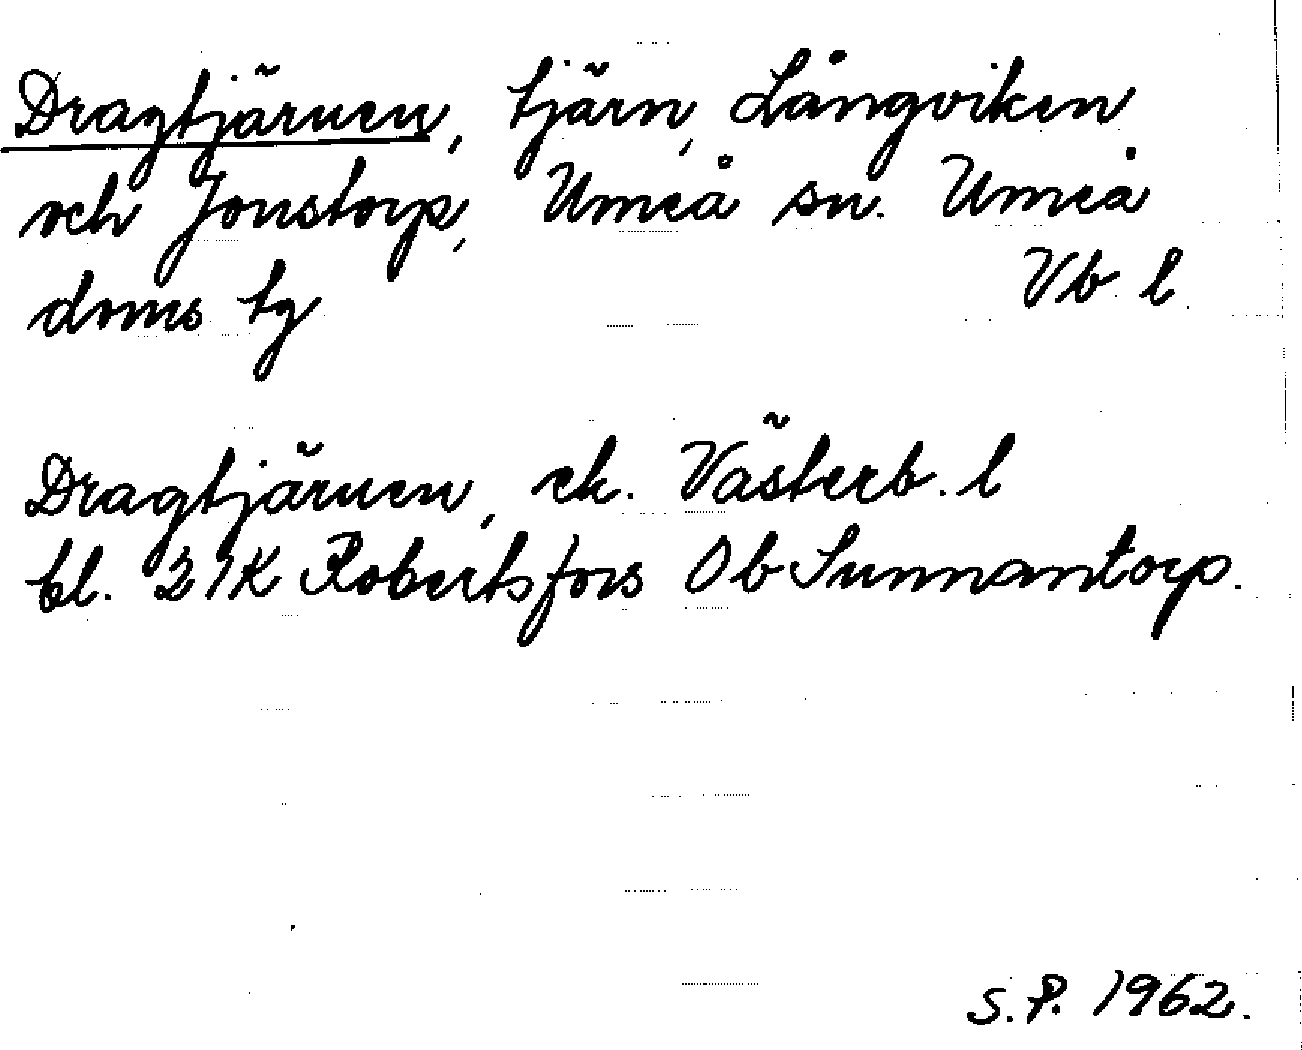 Dragtjärnen, tjärn, Långviken
och Jonstorp, Umeå sn. Umeå
doms tg Vb l.
Dragtjärnen, ek. Västerb. l
bl. 21K Robertsfors Ob Sunnantorp.
S.P. 1962.